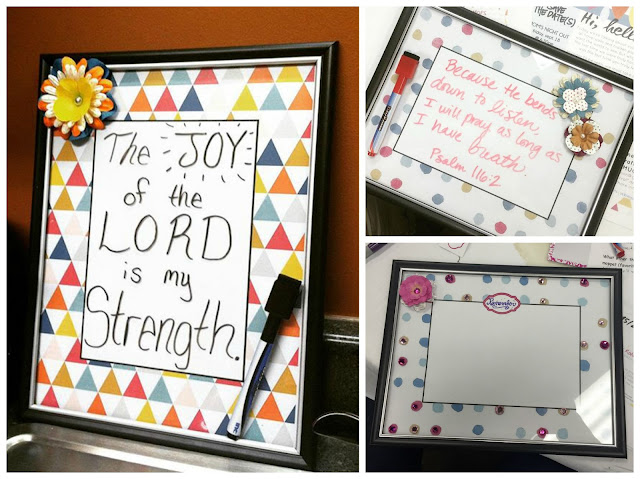 The JOY
of the
LORD
is my
Strength.
Because He bends
down to listen,
I will pray as long as
I have breath.
Psalm 116:2
THE DATE(S)
MOM'S NIGHT OUT
Hi, hello